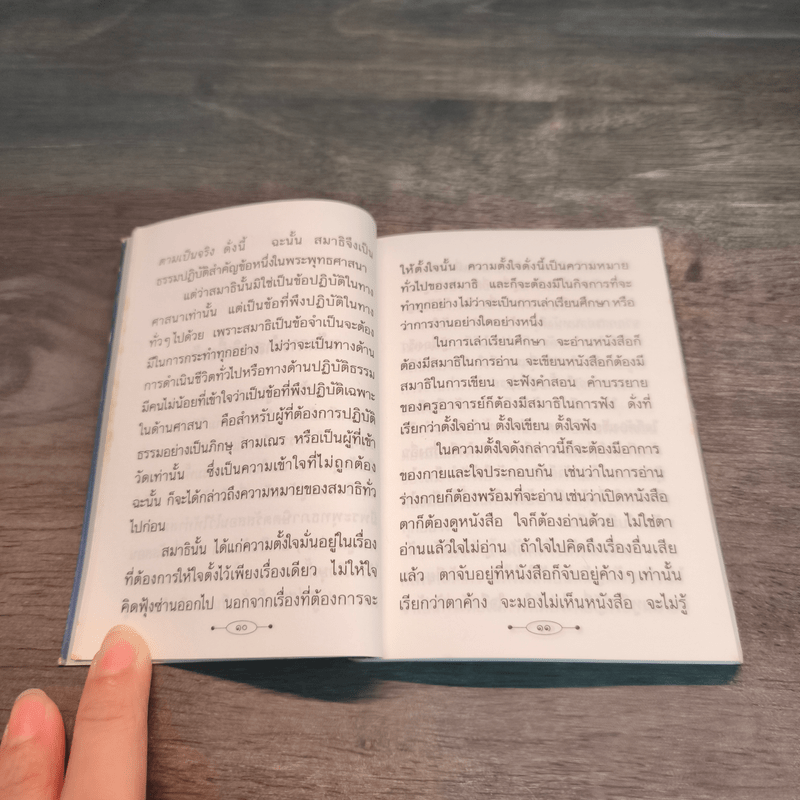 ตามเป็นจริง ดั่งนี้ ฉะนั้น สมาธิจึงเป็น
ธรรมปฏิบัติสำคัญข้อหนึ่งในพระพุทธศาสนา
แต่ว่าสมาธินั้นมิใช่เป็นข้อปฏิบัติในทาง
ศาสนาเท่านั้น แต่เป็นข้อที่พึงปฏิบัติในทาง
ทั่วๆ ไปด้วย เพราะสมาธิเป็นข้อจำเป็นจะต้อง
มีในการกระทำทุกอย่าง ไม่ว่าจะเป็นทางด้าน
การดำเนินชีวิตทั่วไปหรือทางด้านปฏิบัติธรรม
มีคนไม่น้อยที่เข้าใจว่าเป็นข้อที่พึงปฏิบัติเฉพาะ
ในด้านศาสนา คือสำหรับผู้ที่ต้องการปฏิบัติ
ธรรมอย่างเป็นภิกษุ สามเณร หรือเป็นผู้ที่เข้า
วัดเท่านั้น ซึ่งเป็นความเข้าใจที่ไม่ถูกต้อง
ฉะนั้น ก็จะได้กล่าวถึงความหมายของสมาธิทั่ว
ไปก่อน
สมาธินั้น ได้แก่ความตั้งใจมั่นอยู่ในเรื่อง
ที่ต้องการให้ใจตั้งไว้เพียงเรื่องเดียว ไม่ให้ใจ
คิดฟุ้งซ่านออกไป นอกจากเรื่องที่ต้องการจะ
๑๐
ให้ตั้งใจนั้น ความตั้งใจดั่งนี้เป็นความหมาย
ทั่วไปของสมาธิ และก็จะต้องมีในกิจการที่จะ
ทำทุกอย่างไม่ว่าจะเป็นการเล่าเรียนศึกษา หรือ
ว่าการงานอย่างใดอย่างหนึ่ง
ในการเล่าเรียนศึกษา จะอ่านหนังสือก็
ต้องมีสมาธิในการอ่าน จะเขียนหนังสือก็ต้องมี
สมาธิในการเขียน จะฟังคำสอน คำบรรยาย
ของครูอาจารย์ก็ต้องมีสมาธิในการฟัง ดั่งที่
เรียกว่าตั้งใจอ่าน ตั้งใจเขียน ตั้งใจฟัง
ในความตั้งใจดังกล่าวนี้ก็จะต้องมีอาการ
ของกายและใจประกอบกัน เช่นว่าในการอ่าน
ร่างกายก็ต้องพร้อมที่จะอ่าน เช่นว่าเปิดหนังสือ
ตาก็ต้องดูหนังสือ ใจก็ต้องอ่านด้วย ไม่ใช่ตา
อ่านแล้วใจไม่อ่าน ถ้าใจไปคิดถึงเรื่องอื่นเสีย
แล้ว ตาจับอยู่ที่หนังสือก็จับอยู่ค้างๆ เท่านั้น
เรียกว่าตาค้าง จะมองไม่เห็นหนังสือ จะไม่รู้
๑๑